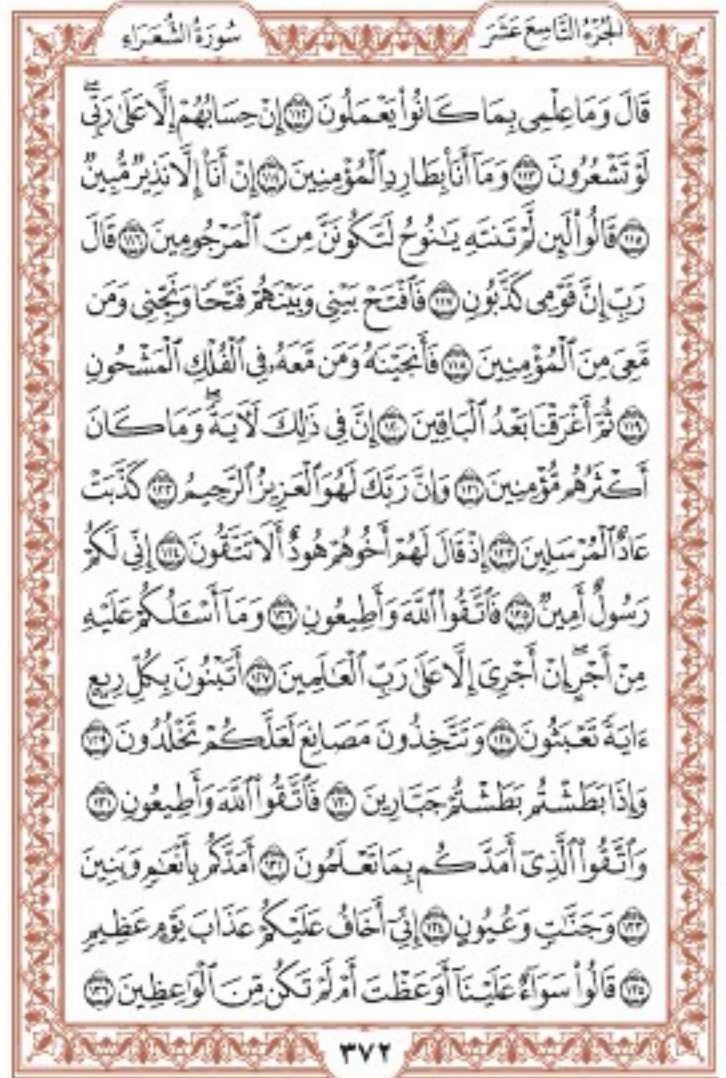 الجزء التاسع عشر
سورة الشعراء
قَالَ وَمَا عِلْمِي بِمَا كَانُوا۟ يَعْمَلُونَ ١١٢ إِنْ حِسَابُهُمْ إِلَّا عَلَىٰ رَبِّىۖ
لَوْ تَشْعُرُونَ ١١٣ وَمَآ أَنَا۠ بِطَارِدِ ٱلْمُؤْمِنِينَ ١١٤ إِنْ أَنَا۠ إِلَّا نَذِيرٌ مُّبِينٌ
١١٥ قَالُوا۟ لَئِن لَّمْ تَنتَهِ يَـٰنُوحُ لَتَكُونَنَّ مِنَ ٱلْمَرْجُومِينَ ١١٦ قَالَ
رَبِّ إِنَّ قَوْمِى كَذَّبُونِ ١١٧ فَٱفْتَحْ بَيْنِى وَبَيْنَهُمْ فَتْحًا وَنَجِّنِى وَمَن
مَّعِىَ مِنَ ٱلْمُؤْمِنِينَ ١١٨ فَأَنجَيْنَـٰهُ وَمَن مَّعَهُۥ فِى ٱلْفُلْكِ ٱلْمَشْحُونِ
١١٩ ثُمَّ أَغْرَقْنَا بَعْدُ ٱلْبَاقِينَ ١٢٠ إِنَّ فِى ذَٰلِكَ لَـَٔايَةًۖ وَمَا كَانَ
أَكْثَرُهُم مُّؤْمِنِينَ ١٢١ وَإِنَّ رَبَّكَ لَهُوَ ٱلْعَزِيزُ ٱلرَّحِيمُ ١٢٢ كَذَّبَتْ
عَادٌ ٱلْمُرْسَلِينَ ١٢٣ إِذْ قَالَ لَهُمْ أَخُوهُمْ هُودٌ أَلَا تَتَّقُونَ ١٢٤ إِنِّى لَكُمْ
رَسُولٌ أَمِينٌ ١٢٥ فَٱتَّقُوا۟ ٱللَّهَ وَأَطِيعُونِ ١٢٦ وَمَآ أَسْـَٔلُكُمْ عَلَيْهِ
مِنْ أَجْرٍۖ إِنْ أَجْرِىَ إِلَّا عَلَىٰ رَبِّ ٱلْعَـٰلَمِينَ ١٢٧ أَتَبْنُونَ بِكُلِّ رِيعٍ
ءَايَةً تَعْبَثُونَ ١٢٨ وَتَتَّخِذُونَ مَصَانِعَ لَعَلَّكُمْ تَخْلُدُونَ ١٢٩
وَإِذَا بَطَشْتُم بَطَشْتُمْ جَبَّارِينَ ١٣٠ فَٱتَّقُوا۟ ٱللَّهَ وَأَطِيعُونِ ١٣١
وَٱتَّقُوا۟ ٱلَّذِىٓ أَمَدَّكُم بِمَا تَعْلَمُونَ ١٣٢ أَمَدَّكُم بِأَنْعَـٰمٍ وَبَنِينَ
١٣٣ وَجَنَّـٰتٍ وَعُيُونٍ ١٣٤ إِنِّىٓ أَخَافُ عَلَيْكُمْ عَذَابَ يَوْمٍ عَظِيمٍ
١٣٥ قَالُوا۟ سَوَآءٌ عَلَيْنَآ أَوَعَظْتَ أَمْ لَمْ تَكُن مِّنَ ٱلْوَٰعِظِينَ ١٣٦
٣٧٢